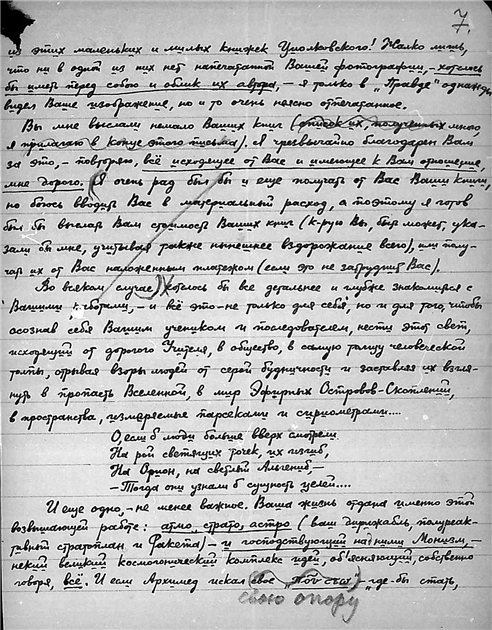 7.
из этих маленьких и милых книжек Циолковского! Жалко лишь,
что ни в одной из них нет напечатанной Вашей фотографии, - хотелось
бы иметь перед собою и облик их автора, - я только в „Правде" однажды
видел Ваше изображение, но и то очень неясно отпечатанное.
Вы мне выслали немало Ваших книг (список их, полученных мною,
я прилагаю в конце этого письма). Я чрезвычайно благодарен Вам
за это, - повторяю, всё исходящее от Вас и имеющее к Вам отношение,
мне дорого. (Я очень рад был бы и еще получать от Вас Ваши книги,
но боюсь вводить Вас в материальный расход, а поэтому я готов
был бы выслать Вам стоимость Ваших книг (к-рую Вы, быть может, ука-
зали бы мне, учитывая также нынешнее вздорожание всего), или полу-
чать их от Вас наложенным платежом (если это не затруднит Вас).
Во всяком случае) хотелось бы все детальнее и глубже знакомиться с
Вашими работами, - и всё это - не только для себя, но и для того, чтобы
осознав себя Вашим учеником и последователем, нести этот свет,
исходящий от дорогого Учителя, в общество, в самую толщу человеческой
толпы, отрывая взоры людей от серой будничности и заставляя их взгля-
нуть в пропасть Вселенной, в мир Эфирных Островов-Скоплений,
в пространства, измеряемые парсеками и сириометрами....
О, если б люди больше вверх смотрели
На рой светящих точек, их изгиб,
На Орион, на светлый Альчениб, -
- Тогда они узнали б сущность целей....
И еще одно, - не менее важное. Ваша жизнь отдана именно этой
возвышающей работе: атмо, страто, астро (ваш дирижабль, полуреак-
тивный стратоплан и Ракета) - и господствующий над ними Монизм, -
некий великий космогонический комплекс идей, об'ясняющий, собственно
говоря, всё. И если Архимед искал свое „Ποῦ στῶ" - где-бы стать,
свою опору